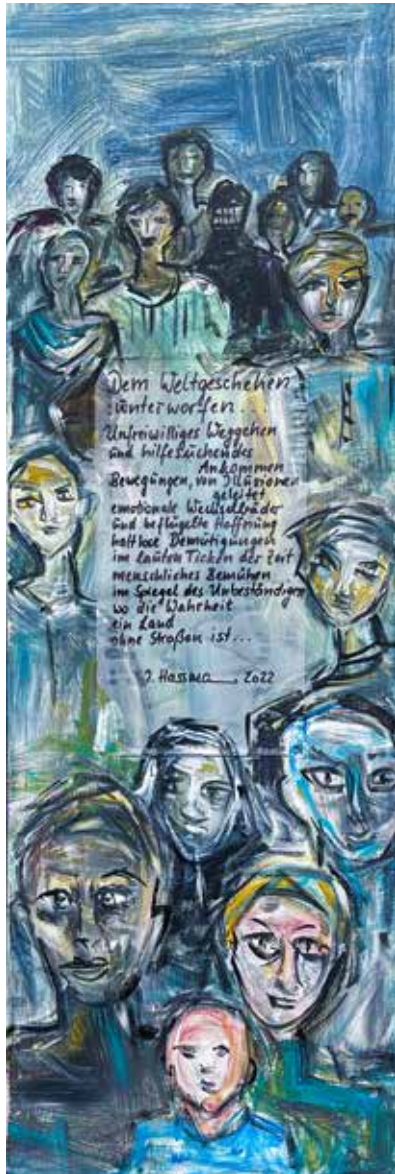 Dem Weltgeschehen
unterworfen...
Unfreiwilliges Weggehen
und hilfesuchendes
Ankommen
Bewegungen, von Illusionen
geleitet
emotionale Wechselbäder
und beflügelte Hoffnung
haltlose Demütigungen
im lauten Ticken der Zeit
menschliches Bemühen
im Spiegel des Unbeständigen
wo die Wahrheit
ein Land
ohne Straßen ist...
2022